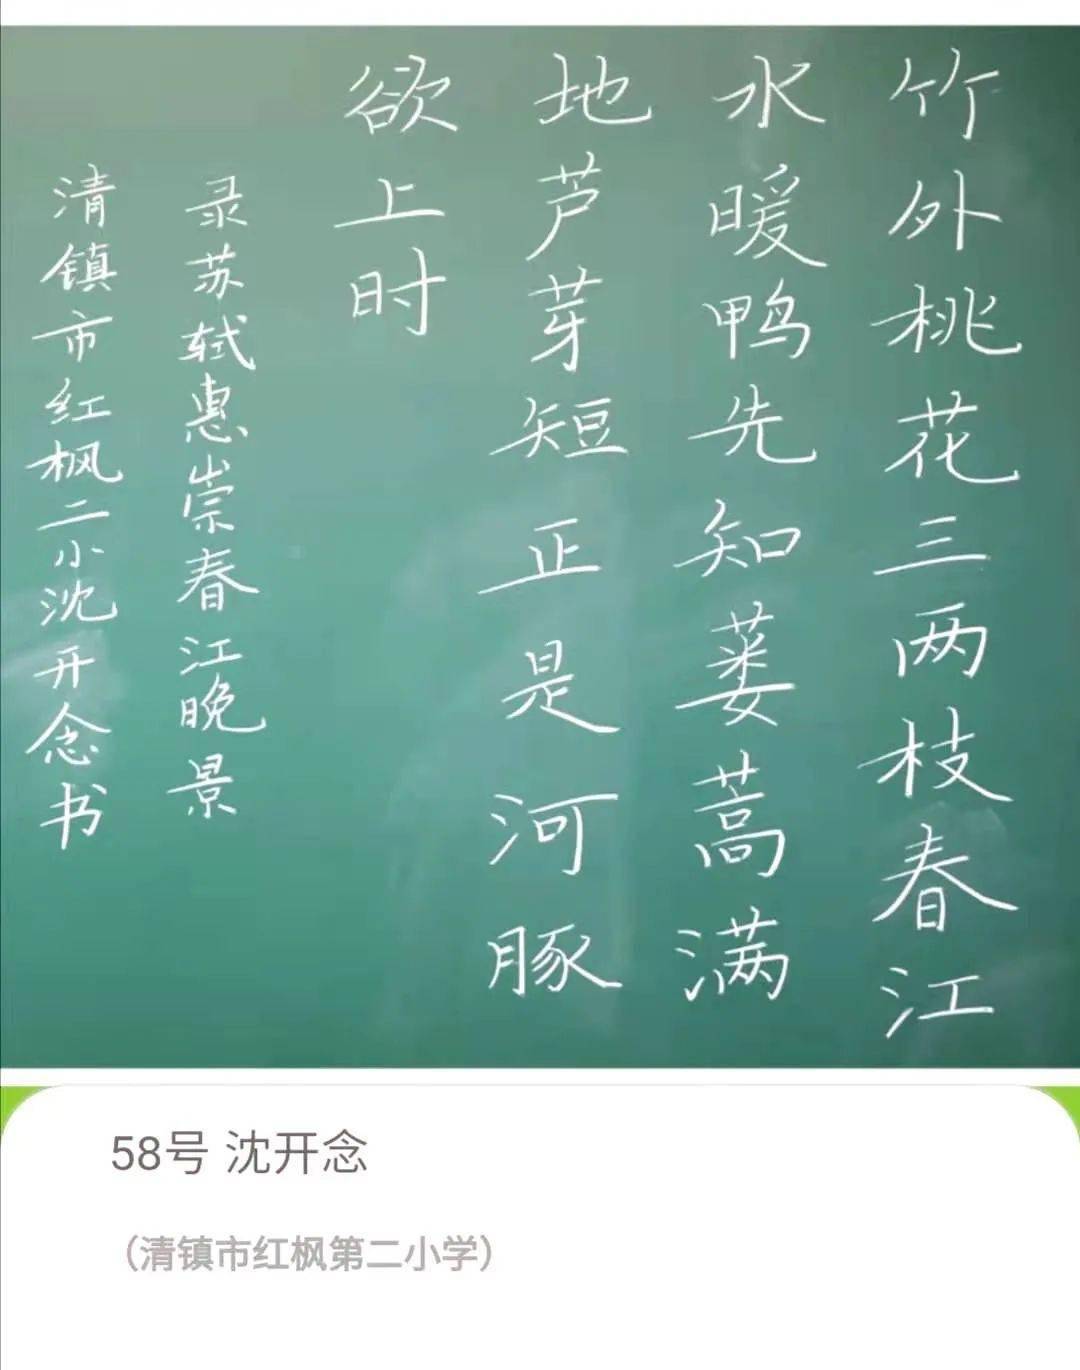 竹外桃花三两枝春江
水暖鸭先知蒌蒿满
地芦芽短正是河豚
欲上时
录苏轼惠崇春江晚景
清镇市红枫二小沈开念书
58号 沈开念
（清镇市红枫第二小学）